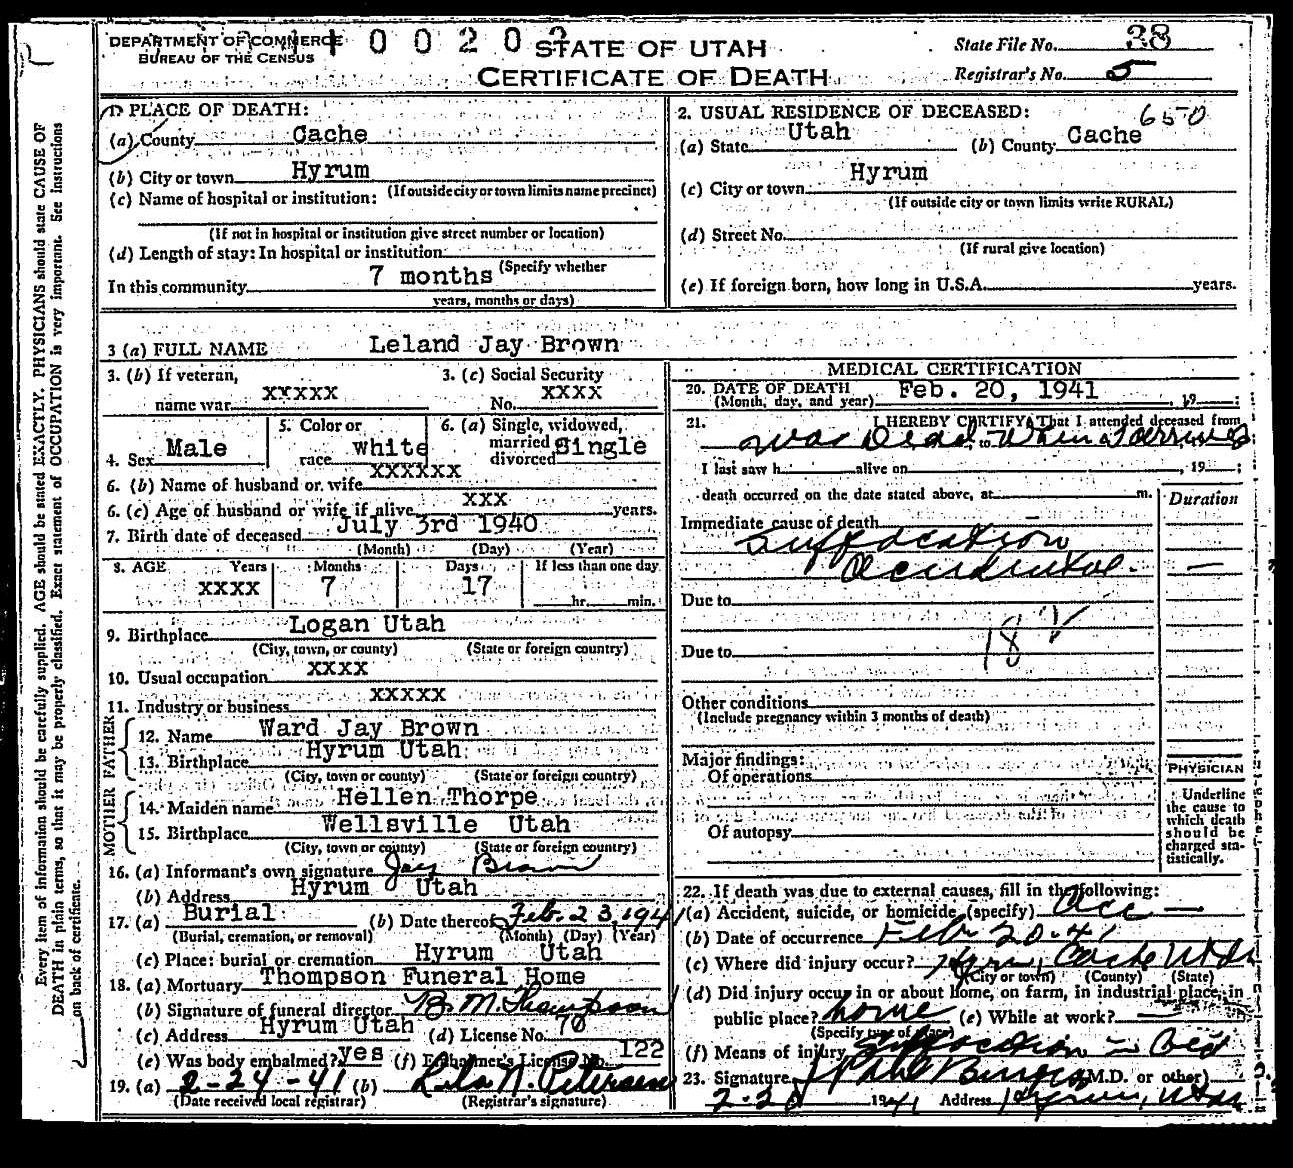 DEPARTMENT OF COMMERCE
BUREAU OF THE CENSUS
0 0 2 0
STATE OF UTAH
CERTIFICATE OF DEATH
State File No. 38
Registrar's No. 5
Every item of information should be carefully supplied. AGE should be stated EXACTLY. PHYSICIANS should state CAUSE OF
DEATH in plain terms, so that it may be properly classified. Exact statement of OCCUPATION is very important. See Instructions
on back of certificate.
1. PLACE OF DEATH:
(a) County Cache
(b) City or town Hyrum
(If outside city or town limits name precinct)
(c) Name of hospital or institution:
(If not in hospital or institution give street number or location)
(d) Length of stay: In hospital or institution
(Specify whether
In this community 7 months
years, months or days)
2. USUAL RESIDENCE OF DECEASED: 650
(a) State Utah (b) County Cache
(c) City or town Hyrum
(If outside city or town limits write RURAL)
(d) Street No.
(If rural give location)
(e) If foreign born, how long in U.S.A. years.
3 (a) FULL NAME Leland Jay Brown
3. (b) If veteran, 3. (c) Social Security
name war xxxxx No. xxxx
4. Sex Male 5. Color or race white 6. (a) Single, widowed, married or divorced Single
6. (b) Name of husband or wife xxxxxx
6. (c) Age of husband or wife if alive xxx years.
7. Birth date of deceased July 3rd 1940
(Month) (Day) (Year)
8. AGE Years Months Days If less than one day
xxxx 7 17 hr. min.
9. Birthplace Logan Utah
(City, town, or county) (State or foreign country)
10. Usual occupation xxxx
11. Industry or business xxxxx
FATHER
12. Name Ward Jay Brown
13. Birthplace Hyrum Utah
(City, town or county) (State or foreign country)
MOTHER
14. Maiden name Hellen Thorpe
15. Birthplace Wellsville Utah
(City, town or county) (State or foreign country)
16. (a) Informant's own signature Jay Brown
(b) Address Hyrum Utah
17. (a) Burial (b) Date thereof Feb. 23, 1941
(Burial, cremation, or removal) (Month) (Day) (Year)
(c) Place: burial or cremation Hyrum Utah
18. (a) Mortuary Thompson Funeral Home
(b) Signature of funeral director B. M. Thompson
(c) Address Hyrum Utah (d) License No. 70
(e) Was body embalmed? yes (f) Embalmer's License No. 122
19. (a) 2-24-41 (b) Lila N. Petersen
(Date received local registrar) (Registrar's signature)
MEDICAL CERTIFICATION
20. DATE OF DEATH Feb. 20, 1941
(Month, day, and year) , 19 ;
21. I HEREBY CERTIFY, That I attended deceased from
was Dead to When I arrived
I last saw h alive on , 19 ;
death occurred on the date stated above, at m.
Duration
Immediate cause of death
Suffocation
Accidental. —
Due to
18
Due to
Other conditions
(Include pregnancy within 3 months of death)
Major findings:
Of operations
Of autopsy
PHYSICIAN
Underline
the cause to
which death
should be
charged sta-
tistically.
22. If death was due to external causes, fill in the following:
(a) Accident, suicide, or homicide (specify) Acc —
(b) Date of occurrence Feb 20-41
(c) Where did injury occur? Hyrum, Cache Utah
(City or town) (County) (State)
(d) Did injury occur in or about home, on farm, in industrial place, in
public place? home (e) While at work? —
(Specify type of place)
(f) Means of injury Suffocation in Bed
23. Signature (M.D. or other)
1941 Address Hyrum, Utah